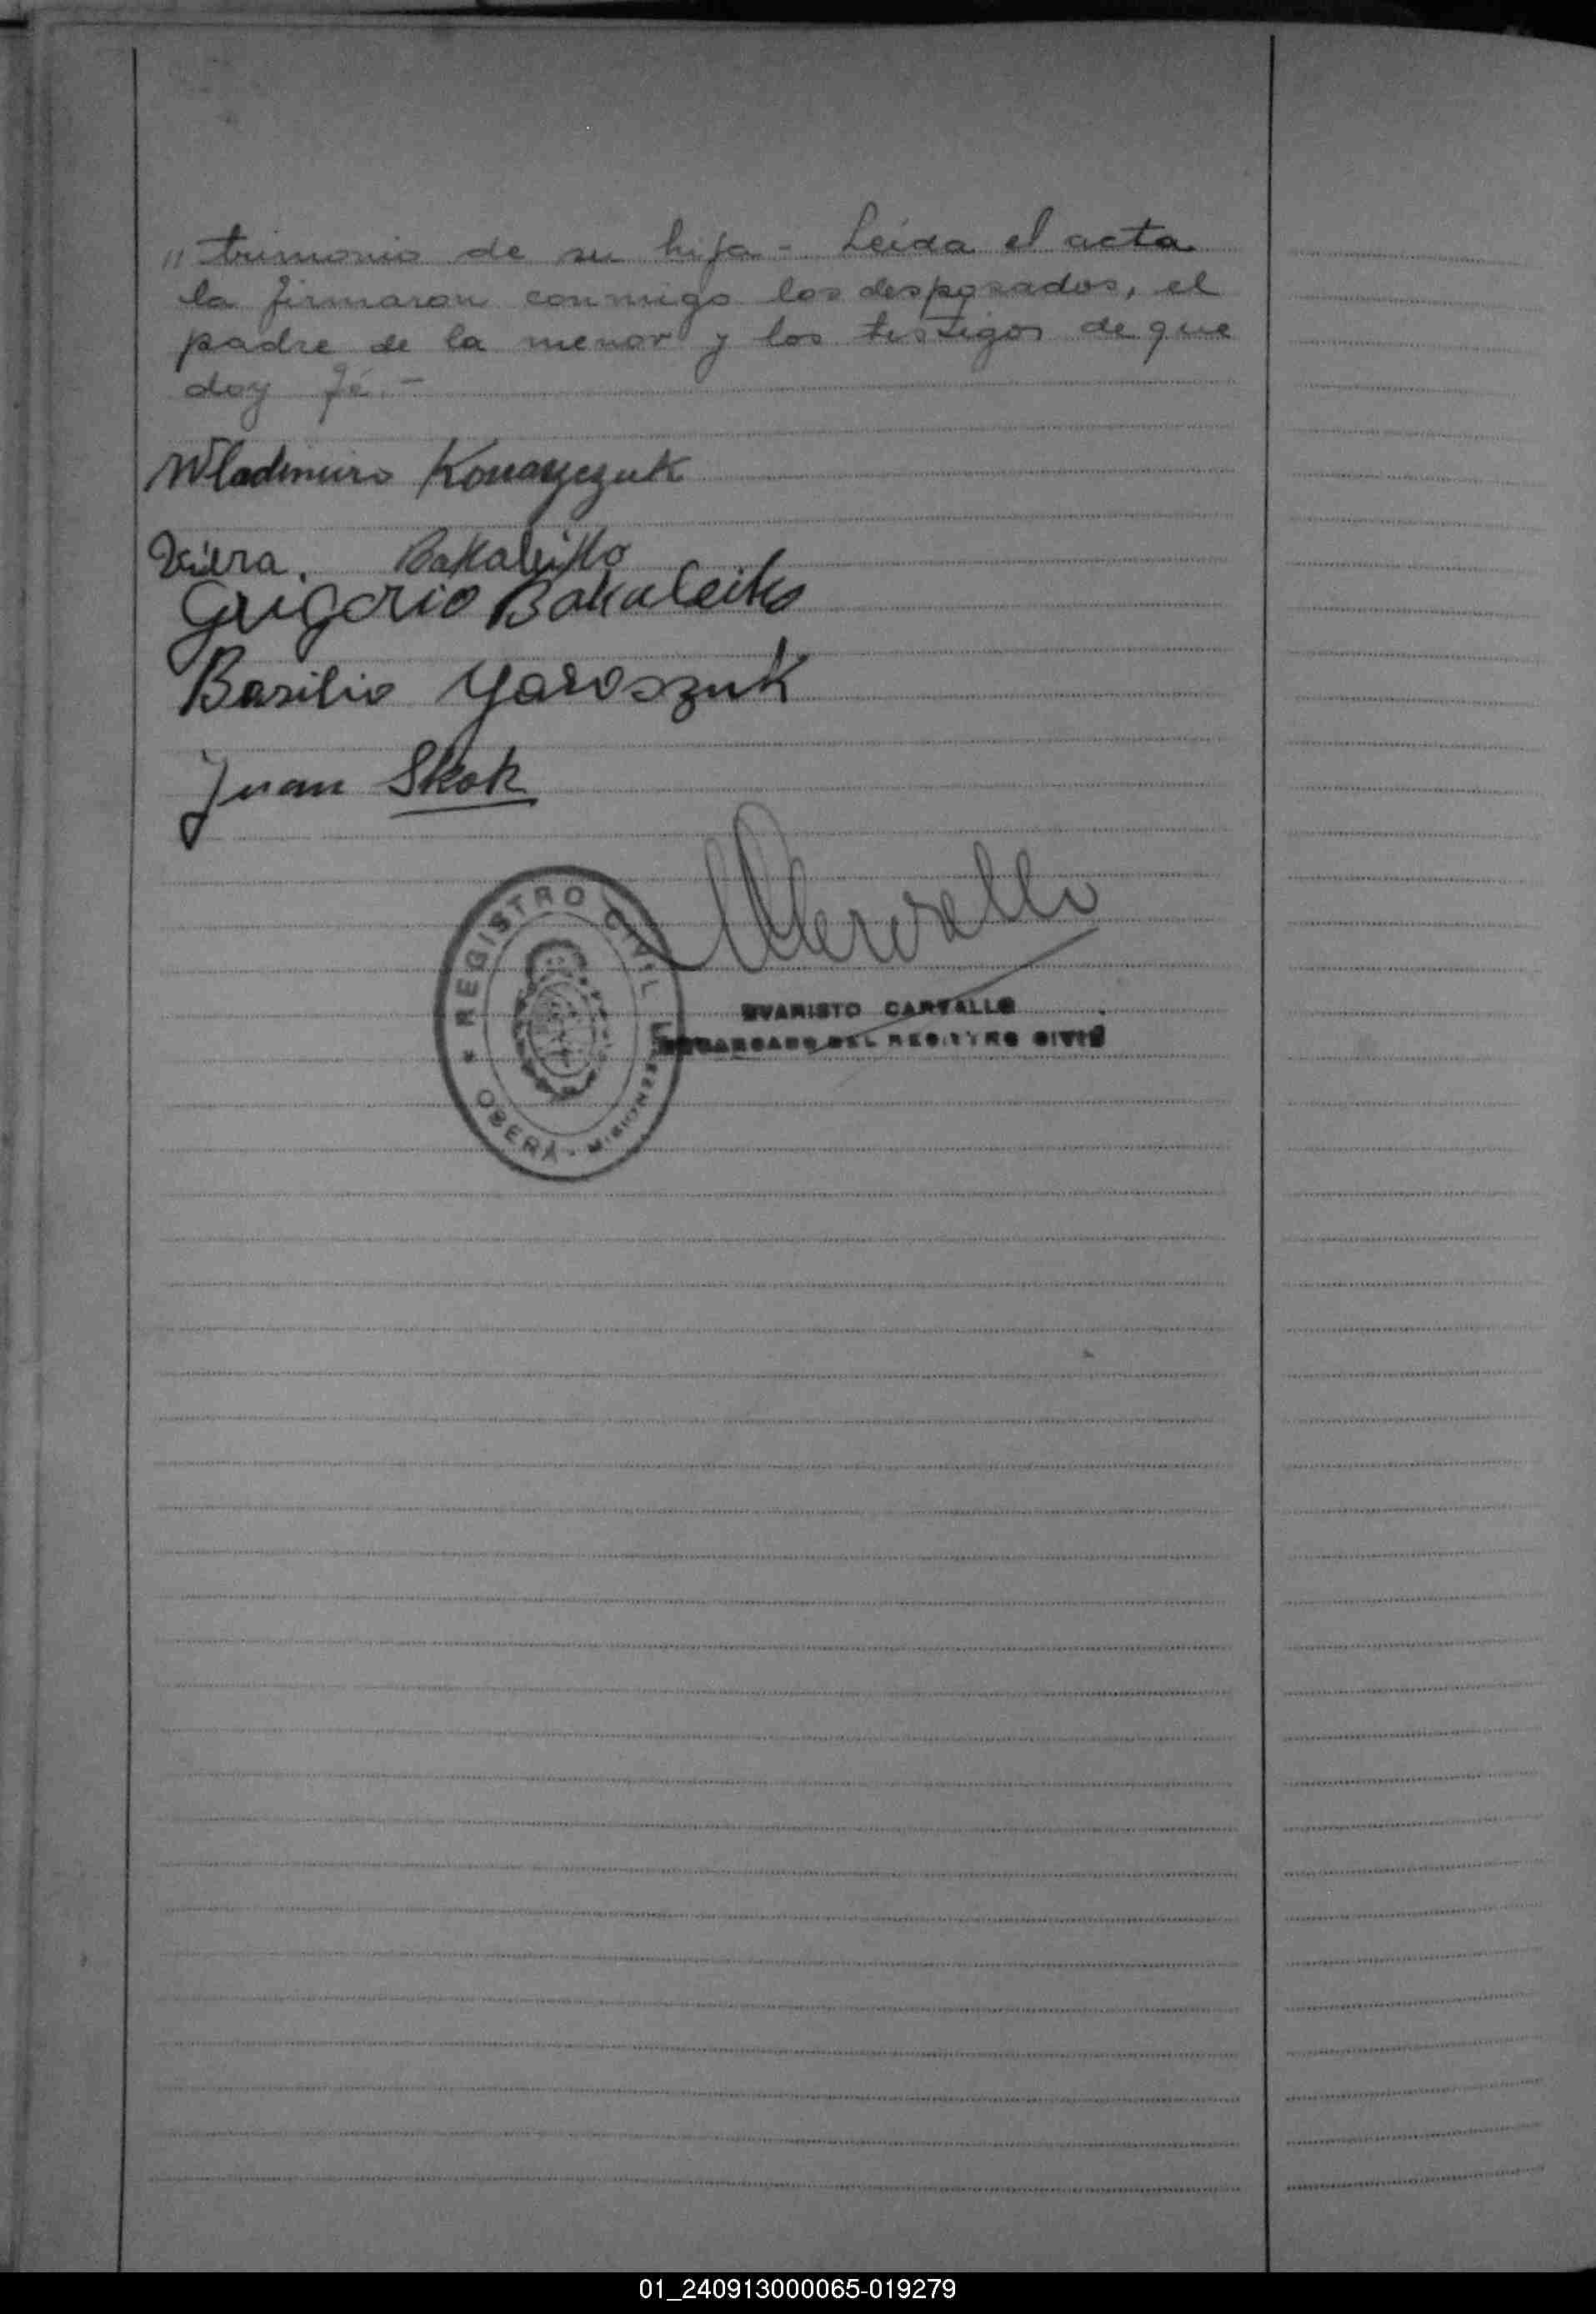 " trimonio de su hija - Leída el acta
la firmaron conmigo los desposados, el
padre de la menor y los testigos de que
doy fé. -
Wladimiro
Viera. Bakaleiko
Grigorio Bakaleiko
Basilio Yaroszuk
Juan Skok
REGISTRO CIVIL
OBERÁ - MISIONES
EVARISTO CARVALLO
ENCARGADO DEL REGISTRO CIVIL
01_240913000065-019279